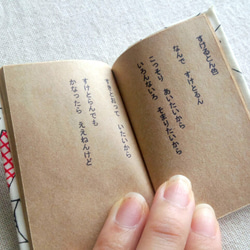 すけるとん色
なんで すけとるん
こっそり あいたいから
いろんないろ そまりたいから
すきとおって いたいから
すけとらんでも
かなったら ええねんけど